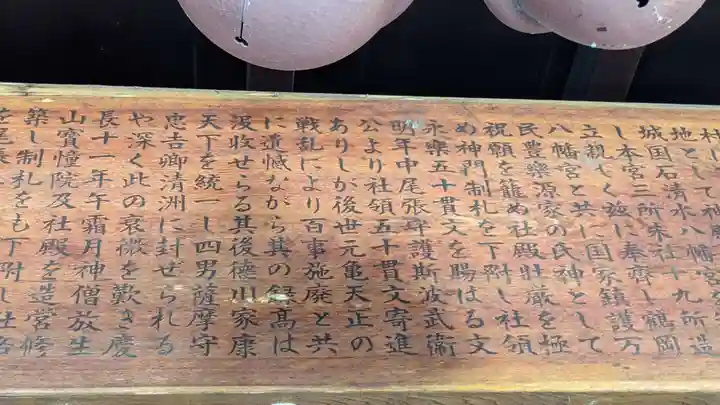 村に八幡宮を
地として神殿を造
城国石清水八幡宮
し本宮三所末社十九所
八幡宮茲に奉齊し鶴岡
立親しく共に国家鎮護万
民豊樂源家の氏神として
祝願を籠め社殿壯厳を極
め神門制札を下附し社領
永樂五十貫文を賜はる文
明年中尾張守護斯波武衞
公より社領五十貫文寄進
ありしが後世元亀天正の
戦乱により百事施廃と共
に遺憾ながら其の録高は
没收せらる其後徳川家康
天下を統一し四男薩摩守
忠吉卿清洲に封ぜられる
や深く此の衰微を歎き慶
長十一年午霜月神僧放生
山寳憧院及社殿を造営修
築し制札をも下附し社